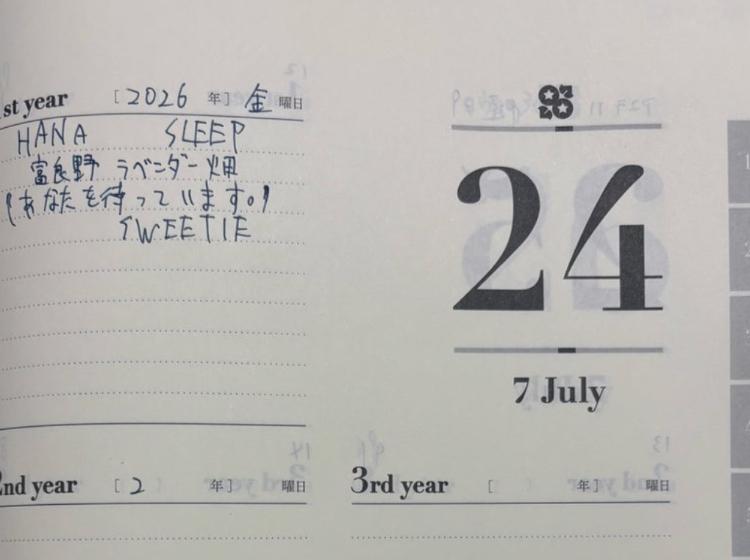 1st year [2026 年] 金 曜日
HANA SLEEP
富良野 ラベンダー 畑
「あなたを待っています。」
SWEETIE
24
7 July
2nd year [2 年] 曜日
3rd year [ 年] 曜日